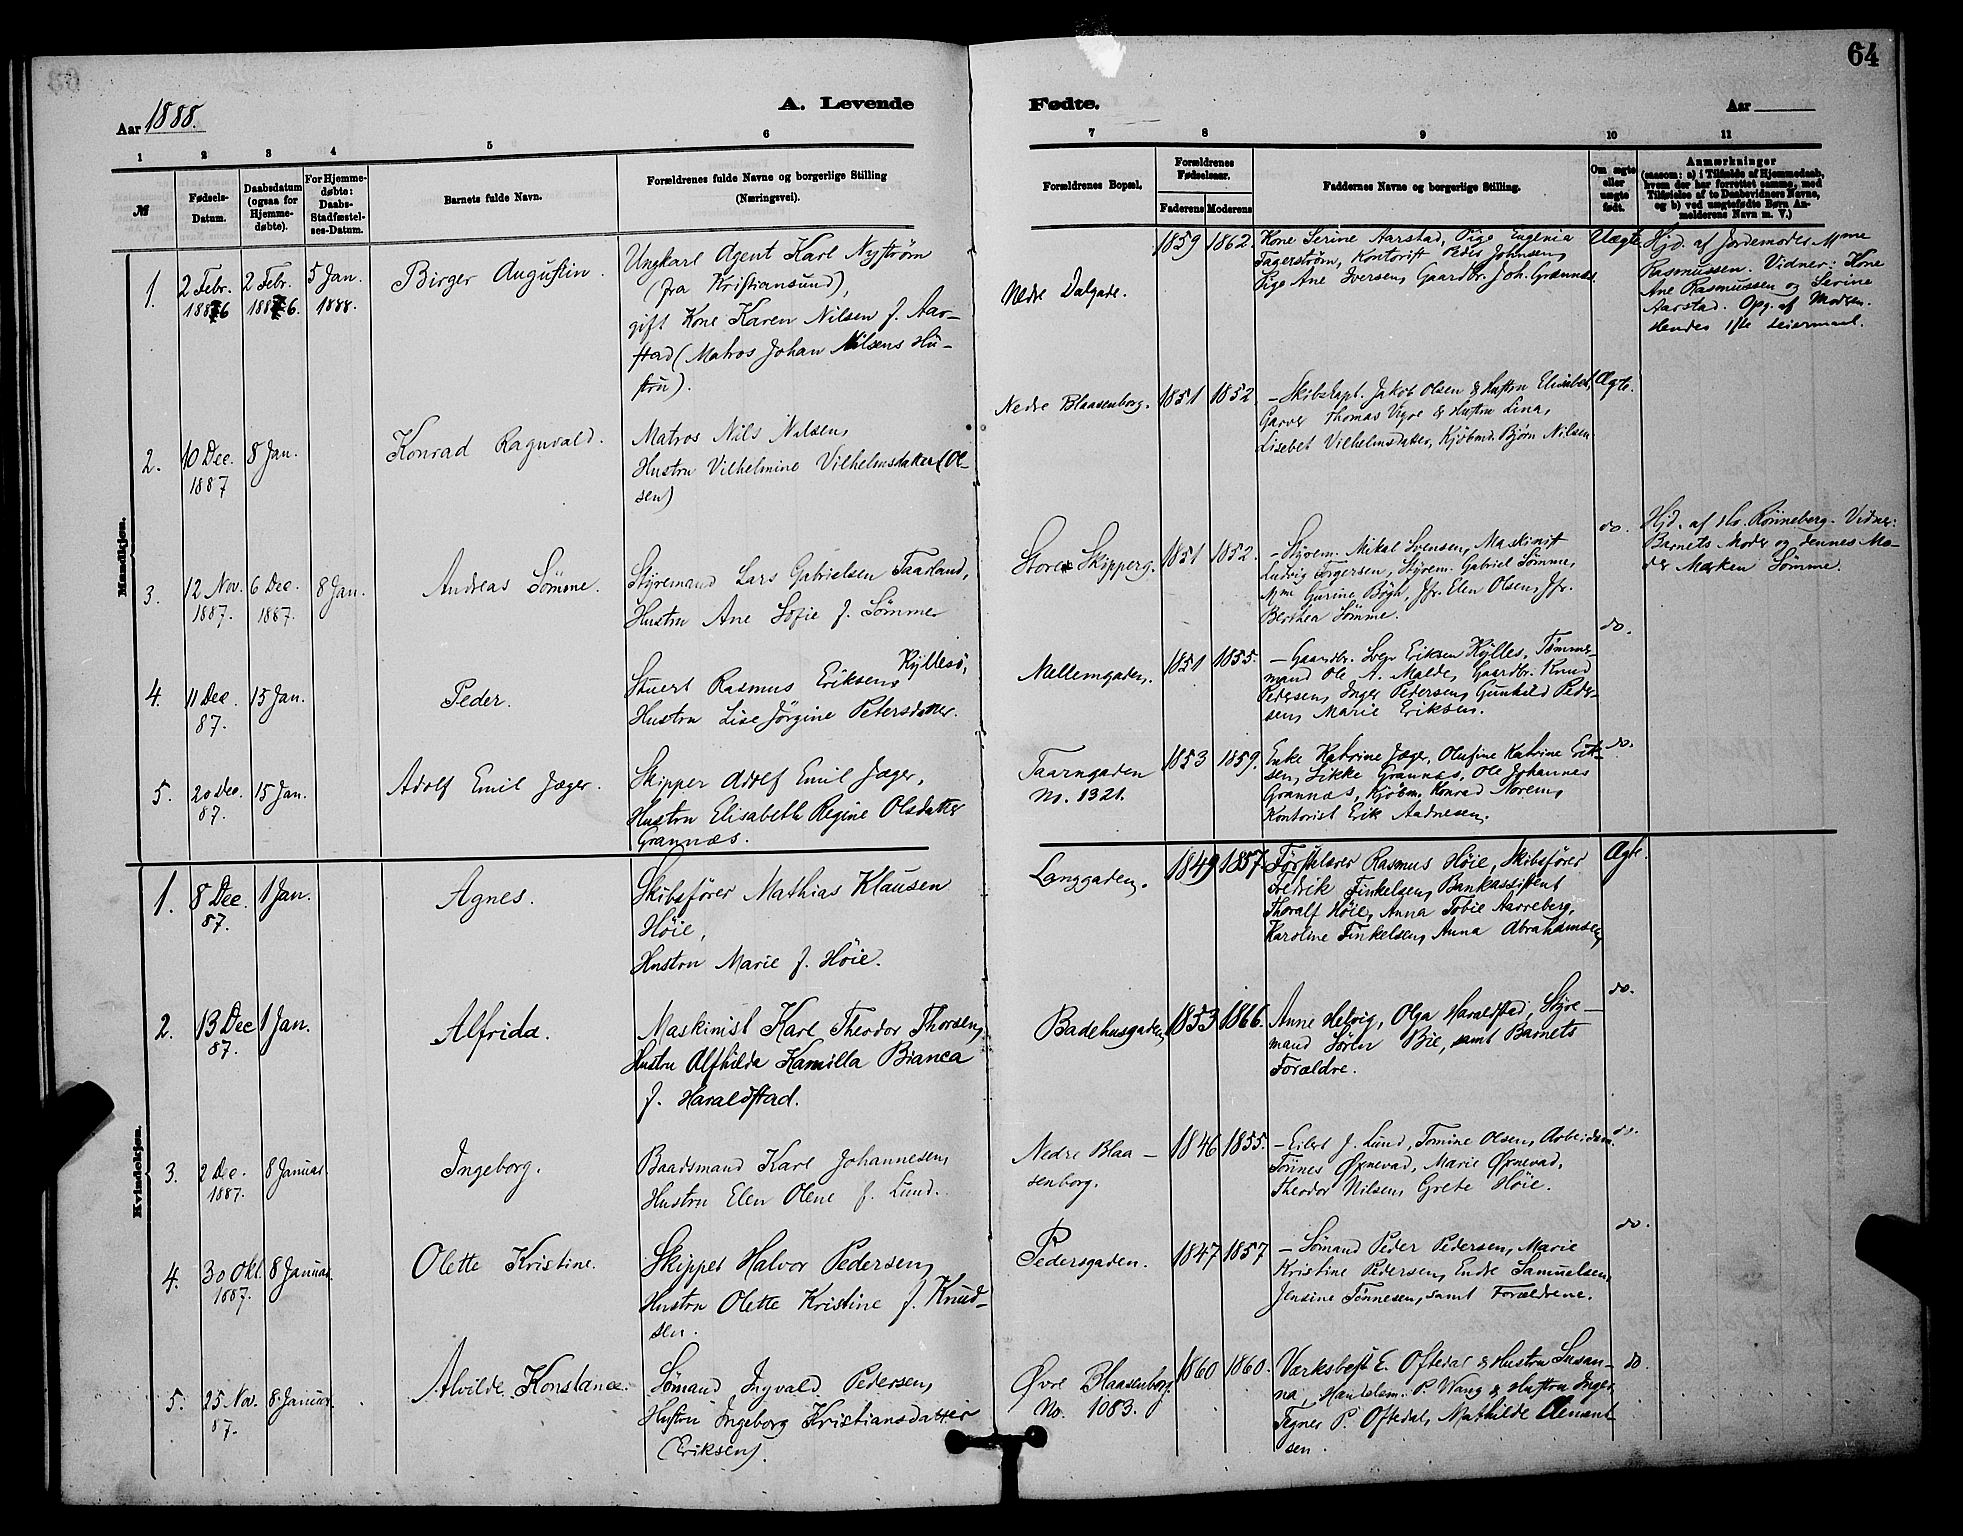 64
Aar 1888.
A. Levende
Fødte.
Aar
1 2 3 4 5 6 7 8 9 10 11
№
Fødsels-
Datum.
Daabsdatum
(ogsaa for
Hjemme-
døbte).
For Hjemme-
døbte:
Daabs-
Stadfæstel-
ses-Datum.
Barnets fulde Navn.
Forældrenes fulde Navne og borgerlige Stilling
(Næringsvei).
Forældrenes Bopæl.
Forældrenes
Fødselsaar.
Faderens Moderens
Faddernes Navne og borgerlige Stilling.
Om ægte
eller
uægte
født.
Anmærkninger
(saasom: a) i Tilfælde af Hjemmedaab,
hvem der har forrettet samme, med
Tilføielse af to Daabsvidners Navne,
og b) ved uægtefødte Børn An-
melderens Navn m. V.)
Mandkjøn.
1.
2 Febr.
1886
2 Febr.
1886.
5 Jan.
1888.
Birger Augustin.
Ungkarl Agent Karl Nystrøm
(fra Kristiansund),
gift Kone Karen Nilsen f. Aar-
stad (Matros Johan Nilsens Hu-
stru).
Nedre Dalgade.
1859 1862.
Kone Serine Aarstad, Pige Eugenia
Fagerstrøm, Kontorist Peder Johnsen,
Pige Ane Iversen, Gaardbr. Joh. Grannæs.
Uægte
Hjd. af Jordemoder Mme
Rasmussen. Vidner: Kone
Ane Rasmussen og Serine
Aarstad. Opg. af Moderen.
Hendes 1ste Leiermaal.
2.
10 Dec.
1887
8 Jan.
Konrad Ragnvald.
Matros Nils Nilsen,
Hustru Vilhelmine Vilhelmsdatter (Ol-
sen)
Nedre Blaasenborg.
1851 1852.
- Skibskapt. Jakob Olsen & Hustru Elisabet,
Garver Thomas Vigre & Hustru Lina,
Lisebet Vilhelmsdatter, Kjøbmd. Bjørn Nilsen.
Ægte.
3.
12 Nov.
1887.
6 Dec.
1887.
8 Jan.
Andreas Sømme.
Styrmand Lars Gabrielsen Taarland,
Hustru Ane Sofie f. Sømme
Store Skipperg.
1851 1852.
- Styrem. Mikal Svensen, Maskinist
Ludvig Torgersen, Styrem. Gabriel Sømme,
Mme Gurine Bøgh, Jfr. Elen Olsen, Jfr.
Berthea Sømme.
do.
Hjd. af Hr. Rønneberg. Vidner:
Barnets Moder og dennes Mo-
der Marken Sømme.
4.
11 Dec.
87.
15 Jan.
Peder.
Stuert Rasmus Eriksen Kyllesø,
Hustru Lise Jørgine Petersdatter.
Mellemgaden.
1851 1855.
- Gaardbr. Sven Eriksen Kylles, Tømmer-
mand Ole A. Malde, Gaardbr. Knud
Pedersen, Inger Pedersen, Gunhild Peder-
sen, Marie Eriksen.
do.
5.
20 Dec.
87.
15 Jan.
Adolf Emil Jæger.
Skipper Adolf Emil Jæger,
Hustru Elisabeth Regine Olsdatter
Grannæs.
Taarngaden
No. 1321.
1853 1859.
Enke Katrine Jæger, Olufine Katrine Erik-
sen, Sikke Grannæs, Ole Johannes
Grannæs, Kjøbm. Konrad Norem,
Kontorist Erik Aadnesen.
do.
Kvindekjøn.
1.
8 Dec.
87.
1 Jan.
Agnes.
Skibsfører Mathias Klausen
Høie,
Hustru Marie f. Høie.
Langgaden.
1849 1857.
Førstelærer Rasmus Høie, Skibsfører
Fredrik Finkelsen, Bankassistent
Thoralf Høie, Anna Tobie Aarreberg,
Karoline Finkelsen, Anna Abrahamsen,
Ægte.
2.
13 Dec
87.
1 Jan.
Alfrida.
Maskinist Karl Theodor Thorsen,
Hustru Alfhilda Kamilla Bianca
f. Haraldstad.
Badehusgaden
1853 1866.
Anne Hedvig, Olga Haraldstad, Styre-
mand Søren Bie, samt Barnets
Forældre.
do.
3.
2 Dec.
1887.
8 Januar
Ingeborg.
Baadsmand Karl Johannesen,
Hustru Elen Olene f. Lund.
Nedre Blaa-
senborg.
1846 1855.
- Eilert J. Lund, Tomine Olsen, Arbeidsm.
Tønnes Ørnevad, Marie Ørnevad,
Theodor Nilsen, Grete Høie.
do.
4.
30 Okt.
1887.
8 Januar
Olette Kristine.
Skipper Halvor Pedersen,
Hustru Olette Kristine f. Knud-
sen.
Pedersgaden.
1847 1857
- Sømand Peder Pedersen, Marie
Kristine Pedersen, Endre Samuelsen,
Jensine Tønnesen, samt Forældrene.
do.
5.
25 Nov.
87.
8 Januar
Alvilde Konstance.
Sømand Ingvald Pedersen,
Hustru Ingeborg Kristiansdatter
(Eriksen).
Øvre Blaasenborg
No. 1083.
1860 1860.
Værksbest. E. Oftedal & Hustru Susan-
na, Handelsm. P. Wang & Hustru Inger
Tegner P. Oftedal, Mathilde Clement
sen.
do.